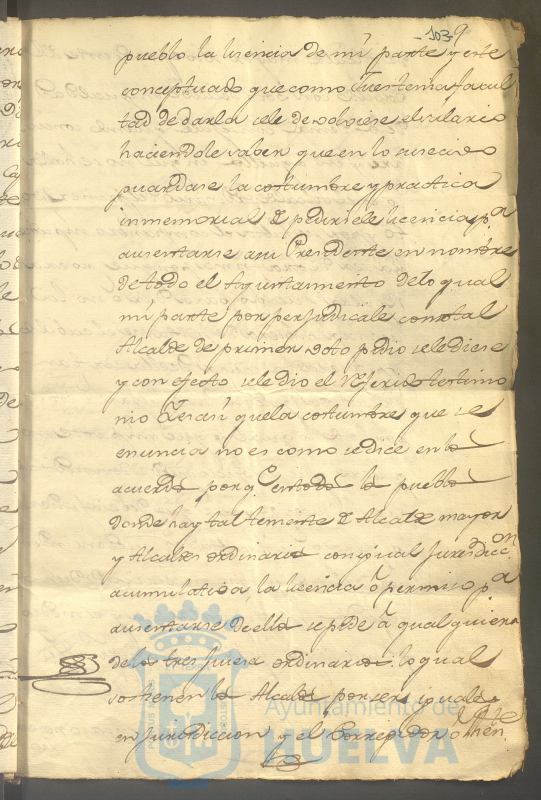 - 103 9
pueblo la licencia de mi parte y este
conceptuado que como Thes tenia facul
tad de darla se le devolviese el salario
haciendole saber que en lo sucesivo
guardase la costumbre y practica
inmemorial de pedirsele licencia pa
ausentarse a su Presidente en nombre
de todo el Ayuntamiento de lo qual
mi parte por perjudicarle como tal
Alcalde de primer voto pidio se le diese
y con efecto se le dio el referido testimo
nio que la costumbre que se
enuncia no es como se dice en los
acuerdos porq.e en todos los pueblos
donde hay tal teniente de Alcalde mayor
y Alcaldes ordinarios con igual Jurisdicc.on
acumulativa, la licencia ó permiso pa
ausentarse de ellos se pide á qualquiera
de los tres Jueces ordinarios lo qual
sostienen los Alcaldes por ser iguales
en Jurisdiccion y el Corregidor o then.te
Ayuntamiento de
HUELVA